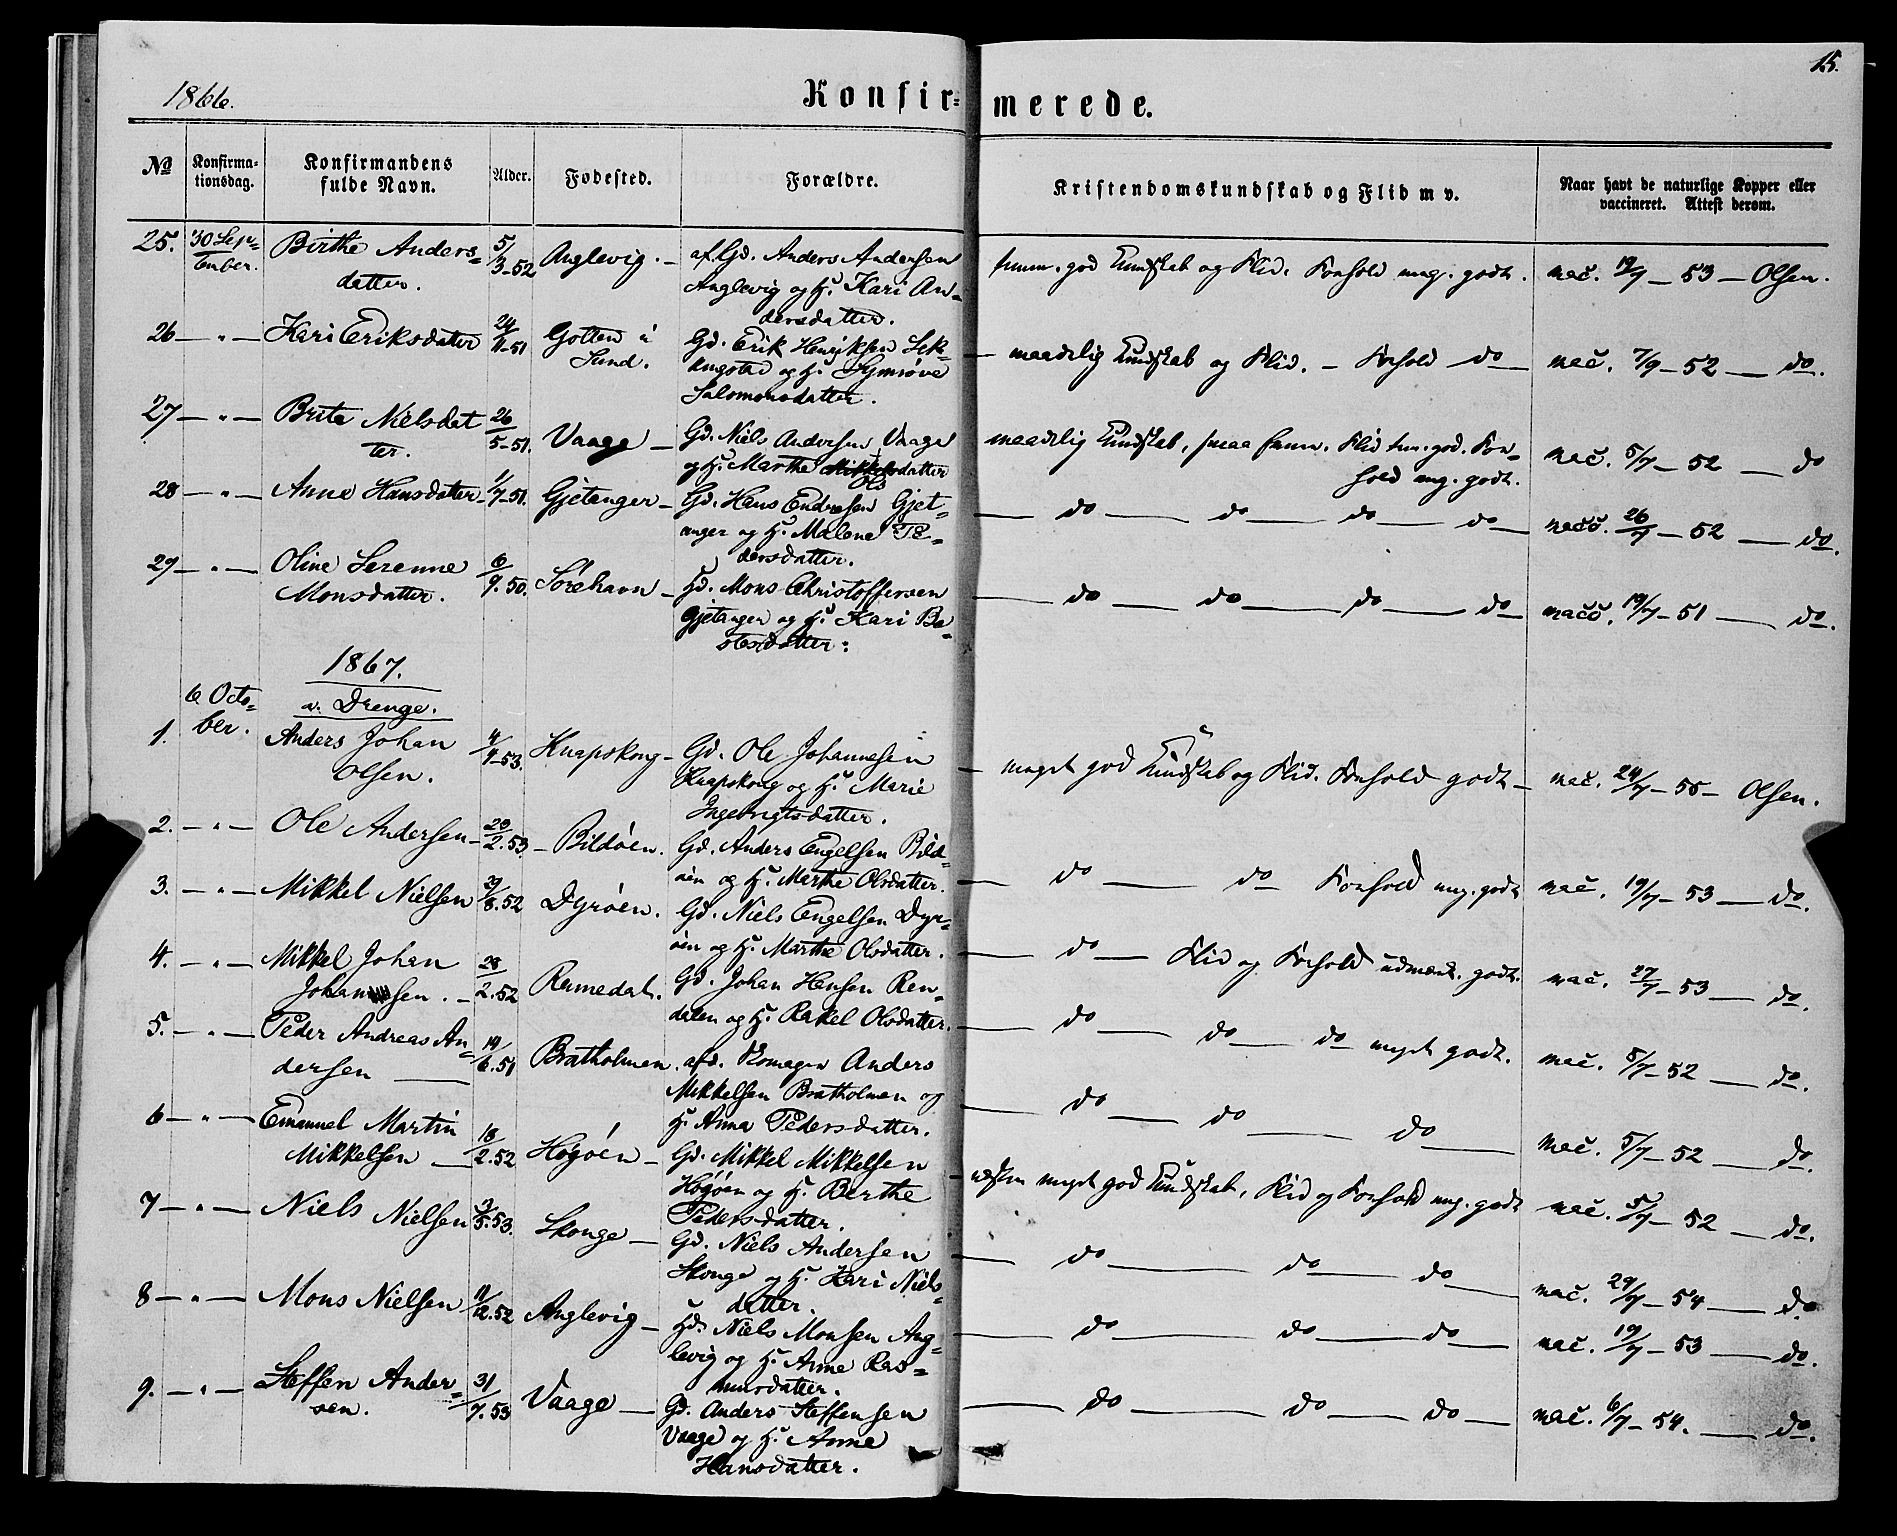 15.
1866.
Konfir=
merede.
No
Konfirma-
tionsdag.
Konfirmandens
fulde Navn.
Alder.
Fødested.
Forældre.
Kristendomskundskab og Flid m v.
Naar havt de naturlige Kopper eller
vaccineret. Attest derom.
25. 30 Sep= Birthe Anders= 5/3-52 Anglevig. - af Gd. Anders Andersen
tember. datter. Anglevig og H. Kari An=
dersdatter.
god Kundskab og Flid. Forhold mg. godt. vac. 19/7 - 53 - Olsen.
26 - " - Kari Eriksdatter 24/11-51 Golten i Gd. Erik Henriksen
Sund. og H. Synnøve
Salomonsdatter.
maadelig Kundskab og Flid. - Forhold do vac. 7/9 - 52 - do.
27 - " - Brita Nielsdat 26/5-51. Vaage - Gd. Niels Andersen Vaage
ter. og H. Marthe Mikkelsdatter
Ols
maadelig Kundskab, Flid god. For=
hold mg. godt. vac. 5/7 - 52 - do
28 - " - Anne Hansdatter 1/7-51. Gjetanger - Gd. Hans Endresen Gjet=
anger og H. Malene Pe=
dersdatter.
do do do do vacc. 26/7 - 52 - do.
29 - " - Oline Serenne 6/9.50. Sørehavn - Hd. Mons Christoffersen
Monsdatter. Gjetanger og H. Kari Ba=
stesdatter.
do do do do vacc. 19/7 - 51 - do.
1867.
6 Octo=
ber.
a. Drenge.
1. Anders Johan 4/4-53. Knapskong - Gd. Ole Johannesen
Olsen. Knapskong og H. Marie
Ingebrigtsdatter.
meget god Kundskab og Flid. Forhold godt - vac. 24/7 - 55 - Olsen.
2. - " - Ole Andersen - 20/2.53. - Bildøen. Gd. Anders Engelsen Bild=
øen og H. Marthe Olsdatter.
do do Forhold mg. godt vac. 19/7 - 53 - do.
3. - " - Mikkel Nielsen 29/8.52 Dyrøen. Gd. Niels Engelsen Dyr=
øen og H. Marthe Olsdatter.
do Flid og Forhold udmærk. godt. vac. 27/7 - 53 - do.
4. - " - Mikkel Johan 28/2.52 Gd. Johan Hansen Ren=
Johannsen. - dalen og H. Rakel Olsdatter.
do do do meget godt. vac. 5/7 - 52 - do.
5. - " - Peder Andreas An= 14/6.51 Bratholmen. afd. Anders
dersen Mikkelsen Bratholmen og
H. Anna Pedersdatter.
do do do vac. 5/7 - 52 - do.
6 - " - Emanuel Martin 18/2.52 Høgøen - Gd. Mikkel Mikkelsen
Mikkelsen Høgøen og H. Berthe
Pedersdatter.
næsten meget god Kundskab, Flid og Forhold mg. godt vac. 5/7 - 52 - do.
7 - " - Niels Nielsen 3/5.53. Skonge - Gd. Niels Andersen
Skonge og H. Kari Niels=
datter.
do do do vac. 29/7 - 54 - do
8 - " - Mons Nielsen 11/12.52 Anglevig - Hd. Niels Monsen Ang=
levig og H. Anne Ras=
musdatter.
do do do vac. 19/7 - 53 - do.
9. - " - Steffen Ander= 31/7.53 Vaage - Gd. Anders Steffensen
sen. Vaage og H. Anne
Hansdatter.
do do do vac. 6/7 - 54. - do.